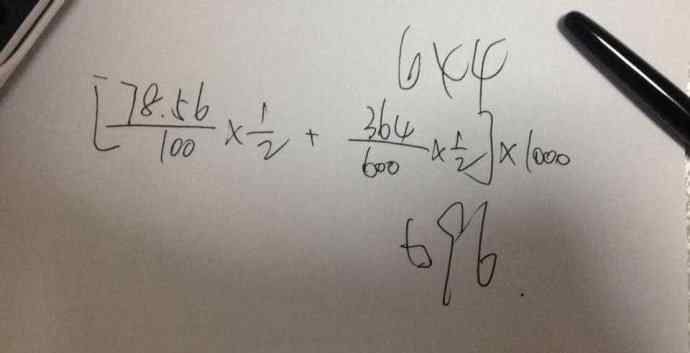 6×4
[78.56/100 × 1/2 + 364/600 × 1/2] × 1000
696.